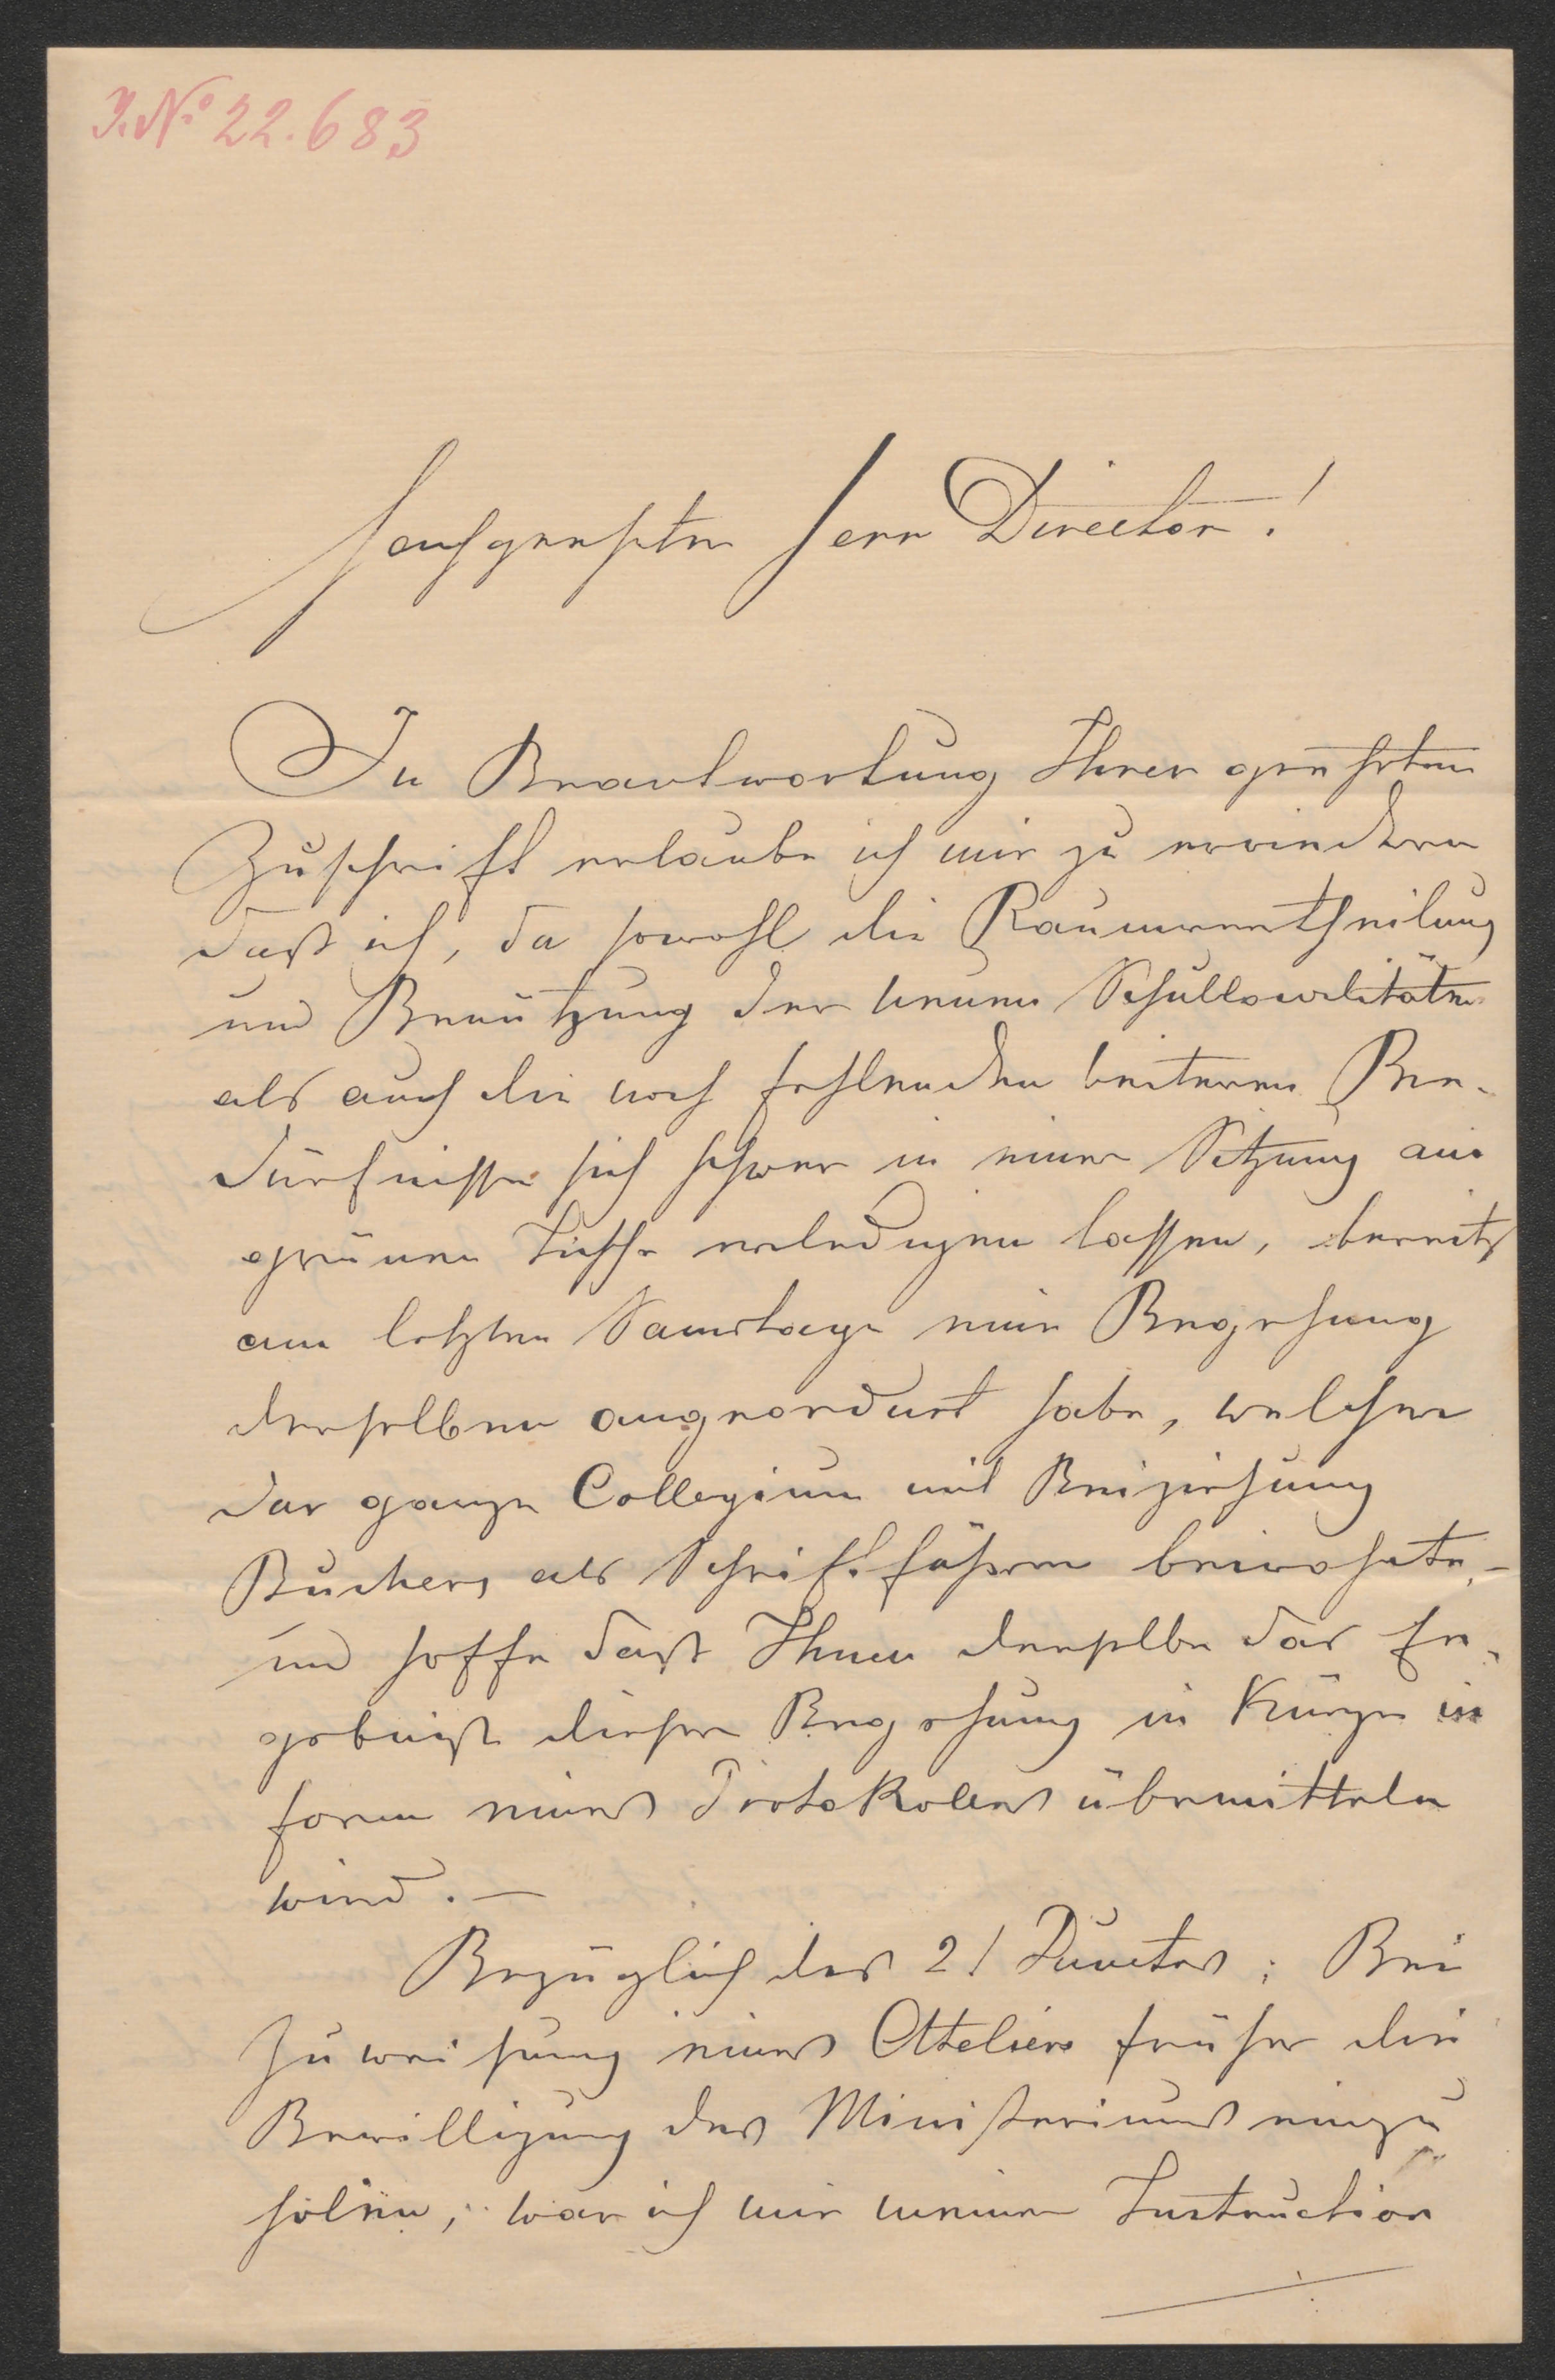 I. No 22.683
Hochgeehrter Herr Director!
In Beantwortung Ihrer geehrten
Zuschrift erlaube ich mir zu erwiedern
daß ich, da sowohl die Raumvertheilung
und Benützung der neuen Schullocalitäten
als auch die noch fehlenden weiteren Be-
dürfnisse sich schwer in einer Sitzung am
grünen Tische erledigen lassen, bereits
am letzten Samstage eine Begehung
derselben angeordnet habe, welcher
das ganze Collegium mit Beiziehung
Buchers als Schriftführer beiwohnte,-
und hoffe daß Ihnen derselbe das Er-
gebniß dieser Begehung in Kürze in
form eines Protokolles übermitteln
wird. —
Bezüglich des 2/ Punctes: Bei
Zuweisung eines Atteliers früher die
Bewilligung des Ministeriums einzu
holen, war ich mir meiner Instruction